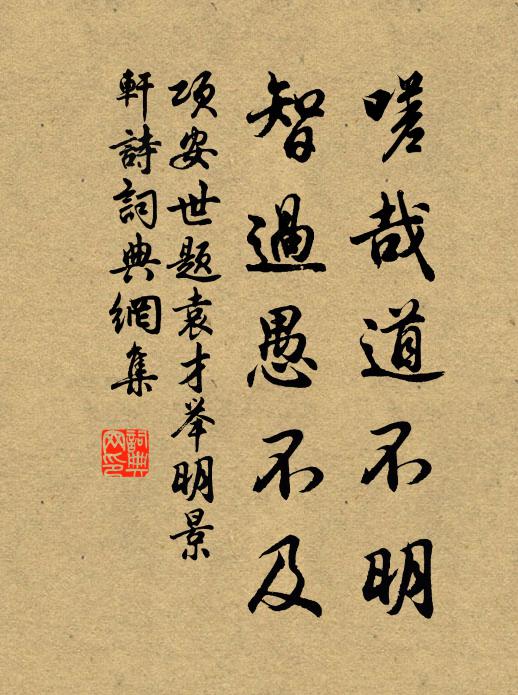 嗟哉道不明
智過愚不及
项安世题袁才举明景
軒詩詞典網集
詞典
网印